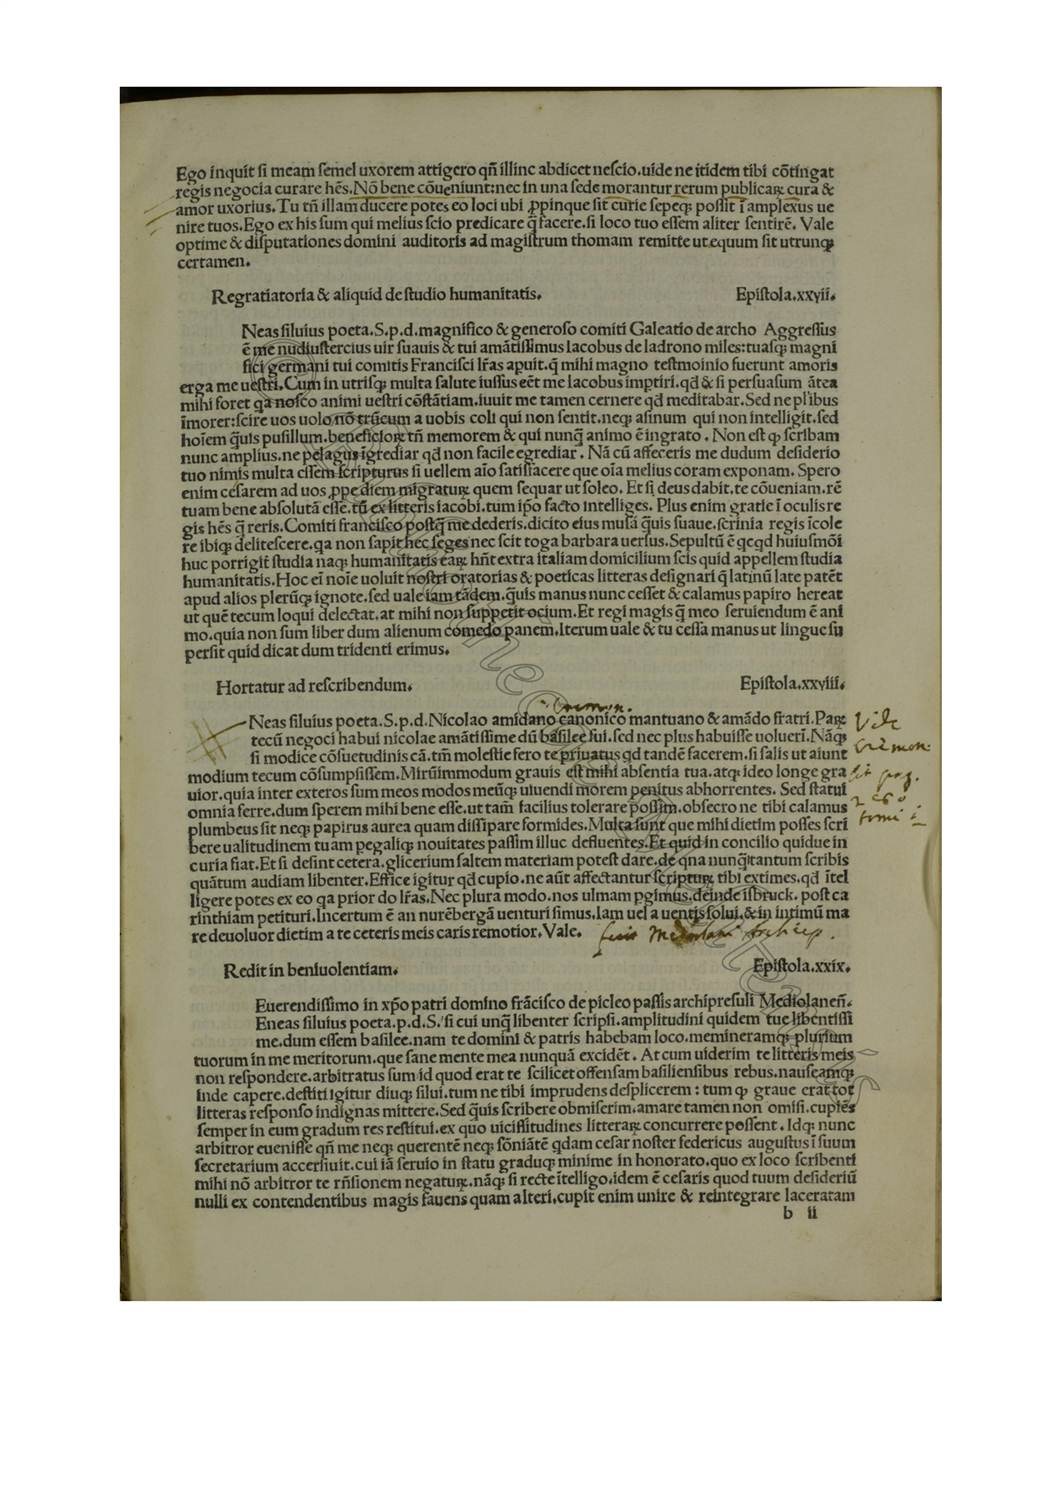 Ego inquit si meam semel uxorem attigero qñ illinc abdicet nescio.uide ne itidem tibi cõtingat
regis negocia curare hẽs.Nõ bene cõueniunt:nec in una sede morantur rerum publicaꝝ cura &
amor uxorius.Tu tñ illam ducere potes eo loci ubi ꝓpinque sit curie sepeqꝫ possit ĩ amplexus ue
nire tuos.Ego ex his sum qui melius scio predicare q̃ facere.si loco tuo essem aliter sentirẽ.Vale
optime & disputationes domini auditoris ad magistrum thomam remitte ut equum sit utrunqꝫ
certamen.
Regratiatoria & aliquid de studio humanitatis. Epistola.xxvii.
Neas siluius poeta.S.p.d.magnifico & generoso comiti Galeatio de archo Aggressus
ẽ me nudiustercius uir suauis & tui amãtissimus Iacobus de ladrono miles:tuasqꝫ magni
fici germani tui comitis Francisci lr̃as apuit.q̃ mihi magno testmoinio fuerunt amoris
erga me uestri.Cum in utrisqꝫ multa salute iussus eẽt me Iacobus imptiri.qd & si persuasum ãtea
mihi foret qa nosco animi uestri cõstãtiam.iuuit me tamen cernere qd meditabar.Sed ne pl'ibus
ĩmorer:scire uos uolo nõ trũcum a uobis coli qui non sentit.neqꝫ asinum qui non intelligit.sed
hoĩem q̃uis pusillum.beneficioꝝ tñ memorem & qui nunq̃ animo ẽ ingrato. Non est ꝙ scribam
nunc amplius.ne pelagus igrediar qd non facile egrediar. Nã cũ affeceris me dudum desiderio
tuo nimis multa essem scripturus si uellem aĩo satisfacere que oĩa melius coram exponam. Spero
enim cesarem ad uos ꝓpe diem migratuꝝ quem sequar ut soleo. Et si deus dabit.te cõueniam.rẽ
tuam bene absolutã esse.tũ ex litteris iacobi.tum ip̃o facto intelliges. Plus enim gratie ĩ oculis re
gis hẽs q̃ reris.Comiti francisco postq̃ me dederis.dicito eius musã q̃uis suaue.scrinia regis ĩcole
re ibiqꝫ delitescere.qa non sapit hec seges nec scit toga barbara uersus.Sepultũ ẽ qcqd huiusmõi
huc porrigit studia naqꝫ humanitatis eaꝝ hñt extra italiam domicilium scis quid appellem studia
humanitatis.Hoc eĩ noĩe uoluit nostri oratorias & poeticas litteras designari q̃ latinũ late patẽt
apud alios plerũqꝫ ignote.sed uale iam tãdem.q̃uis manus nunc cesset & calamus papiro hereat
ut quẽ tecum loqui delectat.at mihi non suppetit ocium.Et regi magis q̃ meo seruiendum ẽ ani
mo.quia non sum liber dum alienum comedo panem.Iterum uale & tu cessa manus ut lingue su
persit quid dicat dum tridenti erimus.
Hortatur ad rescribendum. Epistola.xxviii.
Neas siluius poeta.S.p.d.Nicolao amidano canonico mantuano & amãdo fratri.Paꝝ
tecũ negoci habui nicolae amãtissime dũ basilee fui.sed nec plus habuisse uoluerĩ.Nãqꝫ
si modice cõsuetudinis cã.tm̃ molestie fero te priuatus qd tandẽ facerem.si salis ut aiunt
modium tecum cõsumpsissem.Mirũimmodum grauis est mihi absentia tua.atqꝫ ideo longe gra
uior.quia inter exteros sum meos modos meũqꝫ uiuendi morem penitus abhorrentes. Sed statui
omnia ferre.dum sperem mihi bene esse.ut tam̃ facilius tolerare possim.obsecro ne tibi calamus
plumbeus sit neqꝫ papirus aurea quam dissipare formides.Multa sunt que mihi dietim posses scri
bere ualitudinem tuam pegaliqꝫ nouitates passim illuc defluentes.Et quid in concilio quidue in
curia fiat.Et si desint cetera.glicerium saltem materiam potest dare.de qna nunq̃tantum scribis
quãtum audiam libenter.Effice igitur qd cupio.ne aũt affectantur scriptuꝝ tibi extimes.qd ĩtel
ligere potes ex eo qa prior do lr̃as.Nec plura modo.nos ulmam pgimus.deinde isbruck. post ca
rinthiam petituri.Incertum ẽ an nurẽbergã uenturi simus.Iam uel a uentis solui.& in intimũ ma
re deuoluor dietim a te ceteris meis caris remotior.Vale.
Redit in beniuolentiam. Epistola.xxix.
Euerendissimo in xp̃o patri domino frãcisco de picleo passis archipresuli Mediolaneñ.
Eneas siluius poeta.p.d.S.si cui unq̃ libenter scripsi.amplitudini quidem tue libentissi
me.dum essem basilee.nam te domini & patris habebam loco.memineramqꝫ plurium
tuorum in me meritorum.que sane mente mea nunquã excidẽt. At cum uiderim te litteris meis
non respondere.arbitratus sum id quod erat te scilicet offensam basiliensibus rebus.nauseamqꝫ
inde capere.destiti igitur diuqꝫ silui.tum ne tibi imprudens desplicerem: tum ꝙ graue erat tot
litteras responso indignas mittere.Sed q̃uis scribere obmiserim.amare tamen non omisi.cupiẽs
semper in eum gradum res restitui.ex quo uicissitudines litteraꝝ concurrere possent. Idqꝫ nunc
arbitror euenisse qñ me neqꝫ querentẽ neqꝫ sõniãtẽ qdam cesar noster federicus augustus ĩ suum
secretarium accersiuit.cui iã seruio in statu graduqꝫ minime in honorato.quo ex loco scribenti
mihi nõ arbitror te rñsionem negatuꝝ.nãqꝫ si recte ĩtelligo.idem ẽ cesaris quod tuum desideriũ
nulli ex contendentibus magis fauens quam alteri.cupit enim unire & reintegrare laceratam
b ii